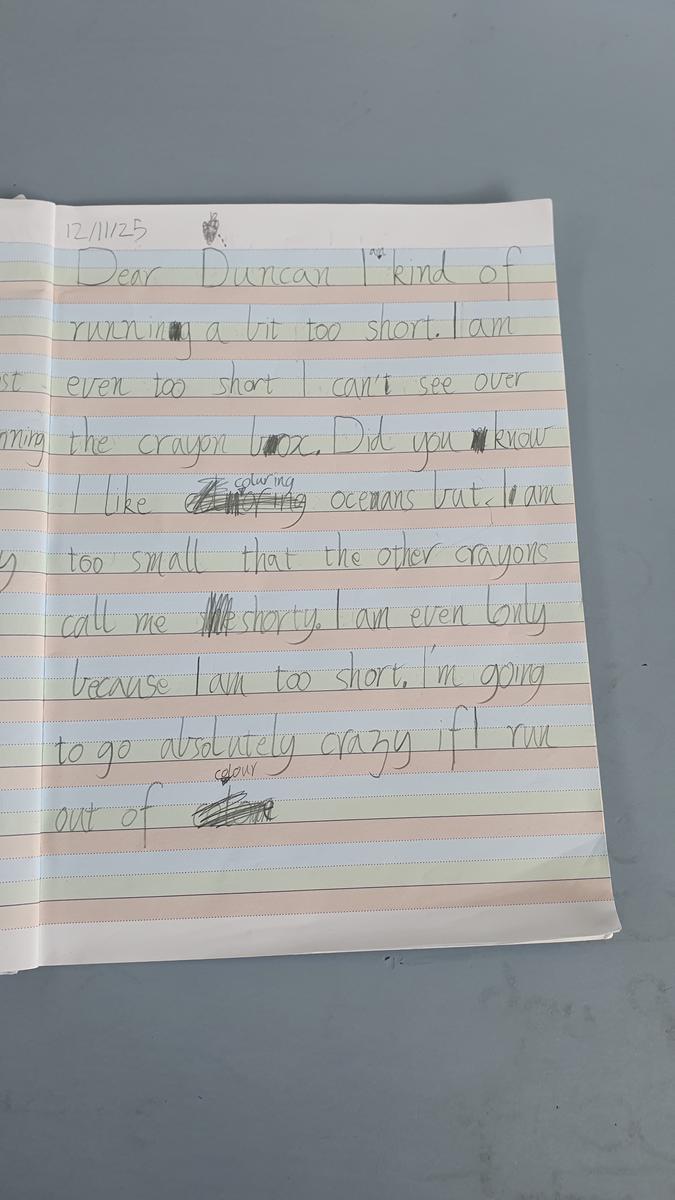 12/11/25
Dear Duncan I am kind of
running a bit too short. I am
st even too short I can't see over
nning the crayon box. Did you know
I like coluring ocenans but. I am
y too small that the other crayons
call me shorty. I am even lonly
because I am too short. I'm going
to go absolutely crazy if I run
out of colour